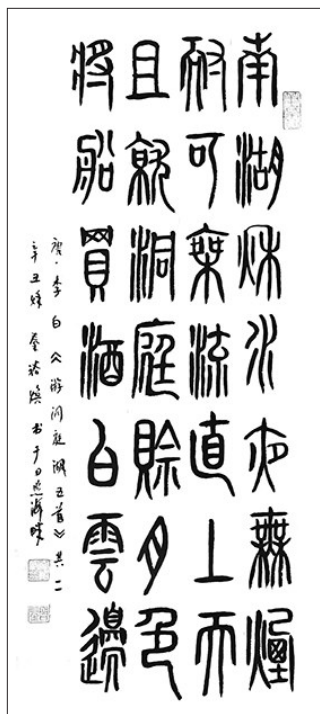 南湖秋水夜無煙
耐可乘流直上天
且就洞庭賒月色
將船買酒白雲邊
唐·李白《游洞庭湖五首》其二
辛丑 书于日照海